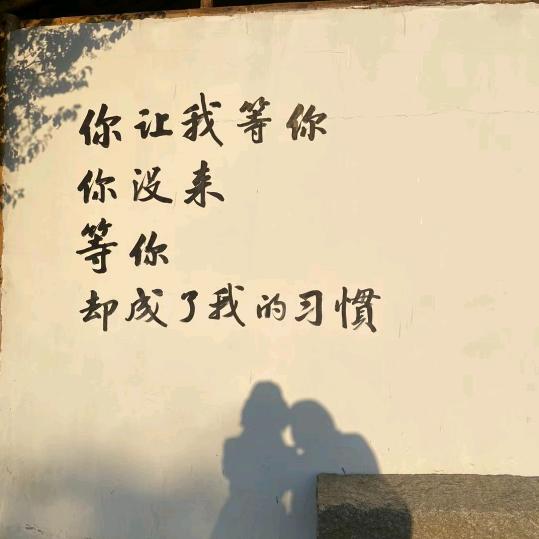 你让我等你
你没来
等你
却成了我的习慣